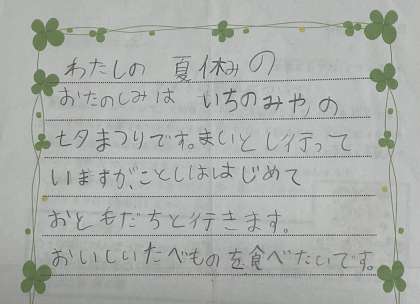 わたしの 夏休みの
おたのしみは いちのみやの
七夕まつりです。まいとし行って
いますが、ことしははじめて
おともだちと行きます。
おいしいたべものを食べたいです。